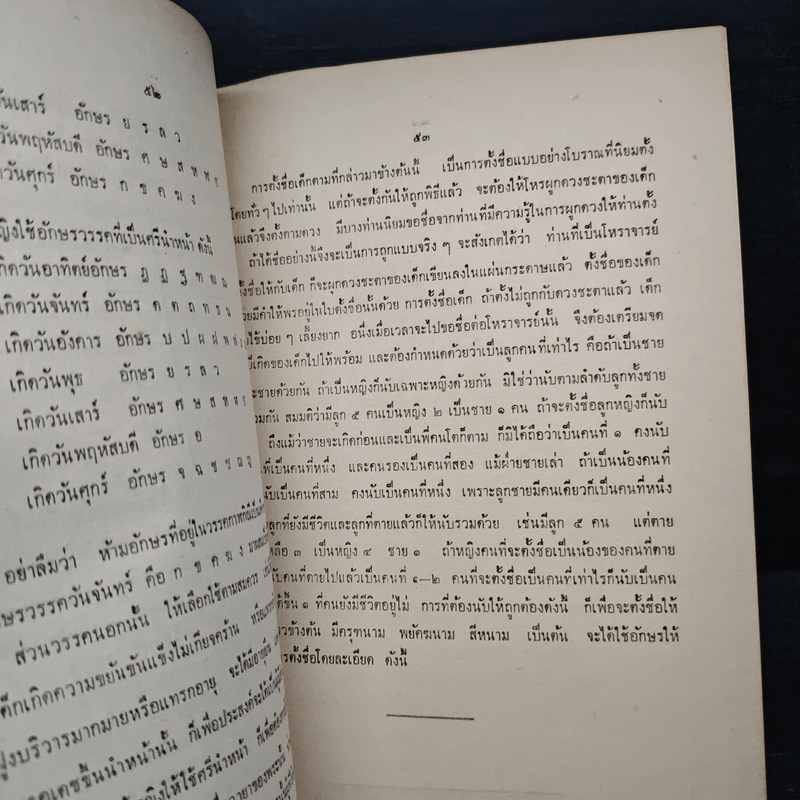 ๕๒
วันเสาร์ อักษร ย ร ล ว
วันพฤหัสบดี อักษร ศ ษ ส ห ฬ ฮ
วันศุกร์ อักษร ก ข ค ฆ ง
หญิงใช้อักษรวรรคที่เป็นศรีนำหน้า ดังนี้
เกิดวันอาทิตย์อักษร ฎ ฏ ฐ ฑ ฒ ณ
เกิดวันจันทร์ อักษร ด ต ถ ท ธ น
เกิดวันอังคาร อักษร บ ป ผ ฝ พ ฟ
เกิดวันพุธ อักษร ย ร ล ว
เกิดวันเสาร์ อักษร ศ ษ ส ห ฬ ฮ
เกิดวันพฤหัสบดี อักษร อ
เกิดวันศุกร์ อักษร จ ฉ ช ซ ฌ ญ
อย่าลืมว่า ห้ามอักษรที่อยู่ในวรรคกาฬกิณี
อักษรวรรควันจันทร์ คือ ก ข ค ฆ ง
ส่วนวรรคนอกนั้น ให้เลือกใช้ตามสมควร
เด็กเกิดความขยันขันแข็งไม่เกียจคร้าน
บริวารมากมายหรือแทรกอายุ จะได้มีอายุยืน
เดชขึ้นนำหน้านั้น ก็เพื่อประสงค์จะได้
หญิงให้ใช้ศรีนำหน้า ก็เพื่อ
๕๓
การตั้งชื่อเด็กตามที่กล่าวมาข้างต้นนี้ เป็นการตั้งชื่อแบบอย่างโบราณที่นิยมตั้ง
โดยทั่ว ๆ ไปเท่านั้น แต่ถ้าจะตั้งกันให้ถูกพิธีแล้ว จะต้องให้โหรผูกดวงชะตาของเด็ก
แล้วจึงตั้งตามดวง มีบางท่านนิยมขอชื่อจากท่านที่มีความรู้ในการผูกดวงให้ท่านตั้ง
ถ้าได้ชื่ออย่างนี้จึงจะเป็นการถูกแบบจริง ๆ จะสังเกตได้ว่า ท่านที่เป็นโหราจารย์
ตั้งชื่อให้กับเด็ก ก็จะผูกดวงชะตาของเด็กเขียนลงในแผ่นกระดาษแล้ว ตั้งชื่อของเด็ก
มีคำให้พรอยู่ในใบตั้งชื่อนั้นด้วย การตั้งชื่อเด็ก ถ้าตั้งไม่ถูกกับดวงชะตาแล้ว เด็ก
ไข้บ่อย ๆ เลี้ยงยาก อนึ่งเมื่อเวลาจะไปขอชื่อต่อโหราจารย์นั้น จึงต้องเตรียมจด
เกิดของเด็กไปให้พร้อม และต้องกำหนดด้วยว่าเป็นลูกคนที่เท่าไร คือถ้าเป็นชาย
ชายด้วยกัน ถ้าเป็นหญิงก็นับเฉพาะหญิงด้วยกัน มิใช่ว่านับตามลำดับลูกทั้งชาย
กัน สมมติว่ามีลูก ๕ คนเป็นหญิง ๒ เป็นชาย ๑ คน ถ้าจะตั้งชื่อลูกหญิงก็นับ
ถึงแม้ว่าชายจะเกิดก่อนและเป็นพี่คนโตก็ตาม ก็มิได้ถือว่าเป็นคนที่ ๑ คงนับ
พี่เป็นคนที่หนึ่ง และคนรองเป็นคนที่สอง แม้ฝ่ายชายเล่า ถ้าเป็นน้องคนที่
นับเป็นคนที่สาม คงนับเป็นคนที่หนึ่ง เพราะลูกชายมีคนเดียวก็เป็นคนที่หนึ่ง
ลูกที่ยังมีชีวิตและลูกที่ตายแล้วก็ให้นับรวมด้วย เช่นมีลูก ๕ คน แต่ตาย
๓ เป็นหญิง ๔ ชาย ๑ ถ้าหญิงคนที่จะตั้งชื่อเป็นน้องของคนที่ตาย
คนที่ตายไปแล้วเป็นคนที่ ๑—๒ คนที่จะตั้งชื่อเป็นคนที่เท่าไรก็นับเป็นคน
ได้ขึ้น ๑ ที่คนยังมีชีวิตอยู่ไม่ การที่ต้องนับให้ถูกต้องดังนี้ ก็เพื่อจะตั้งชื่อให้
ข้างต้น มีครุฑนาม พยัคฆนาม สีหนาม เป็นต้น จะได้ใช้อักษรให้
การตั้งชื่อโดยละเอียด ดังนี้